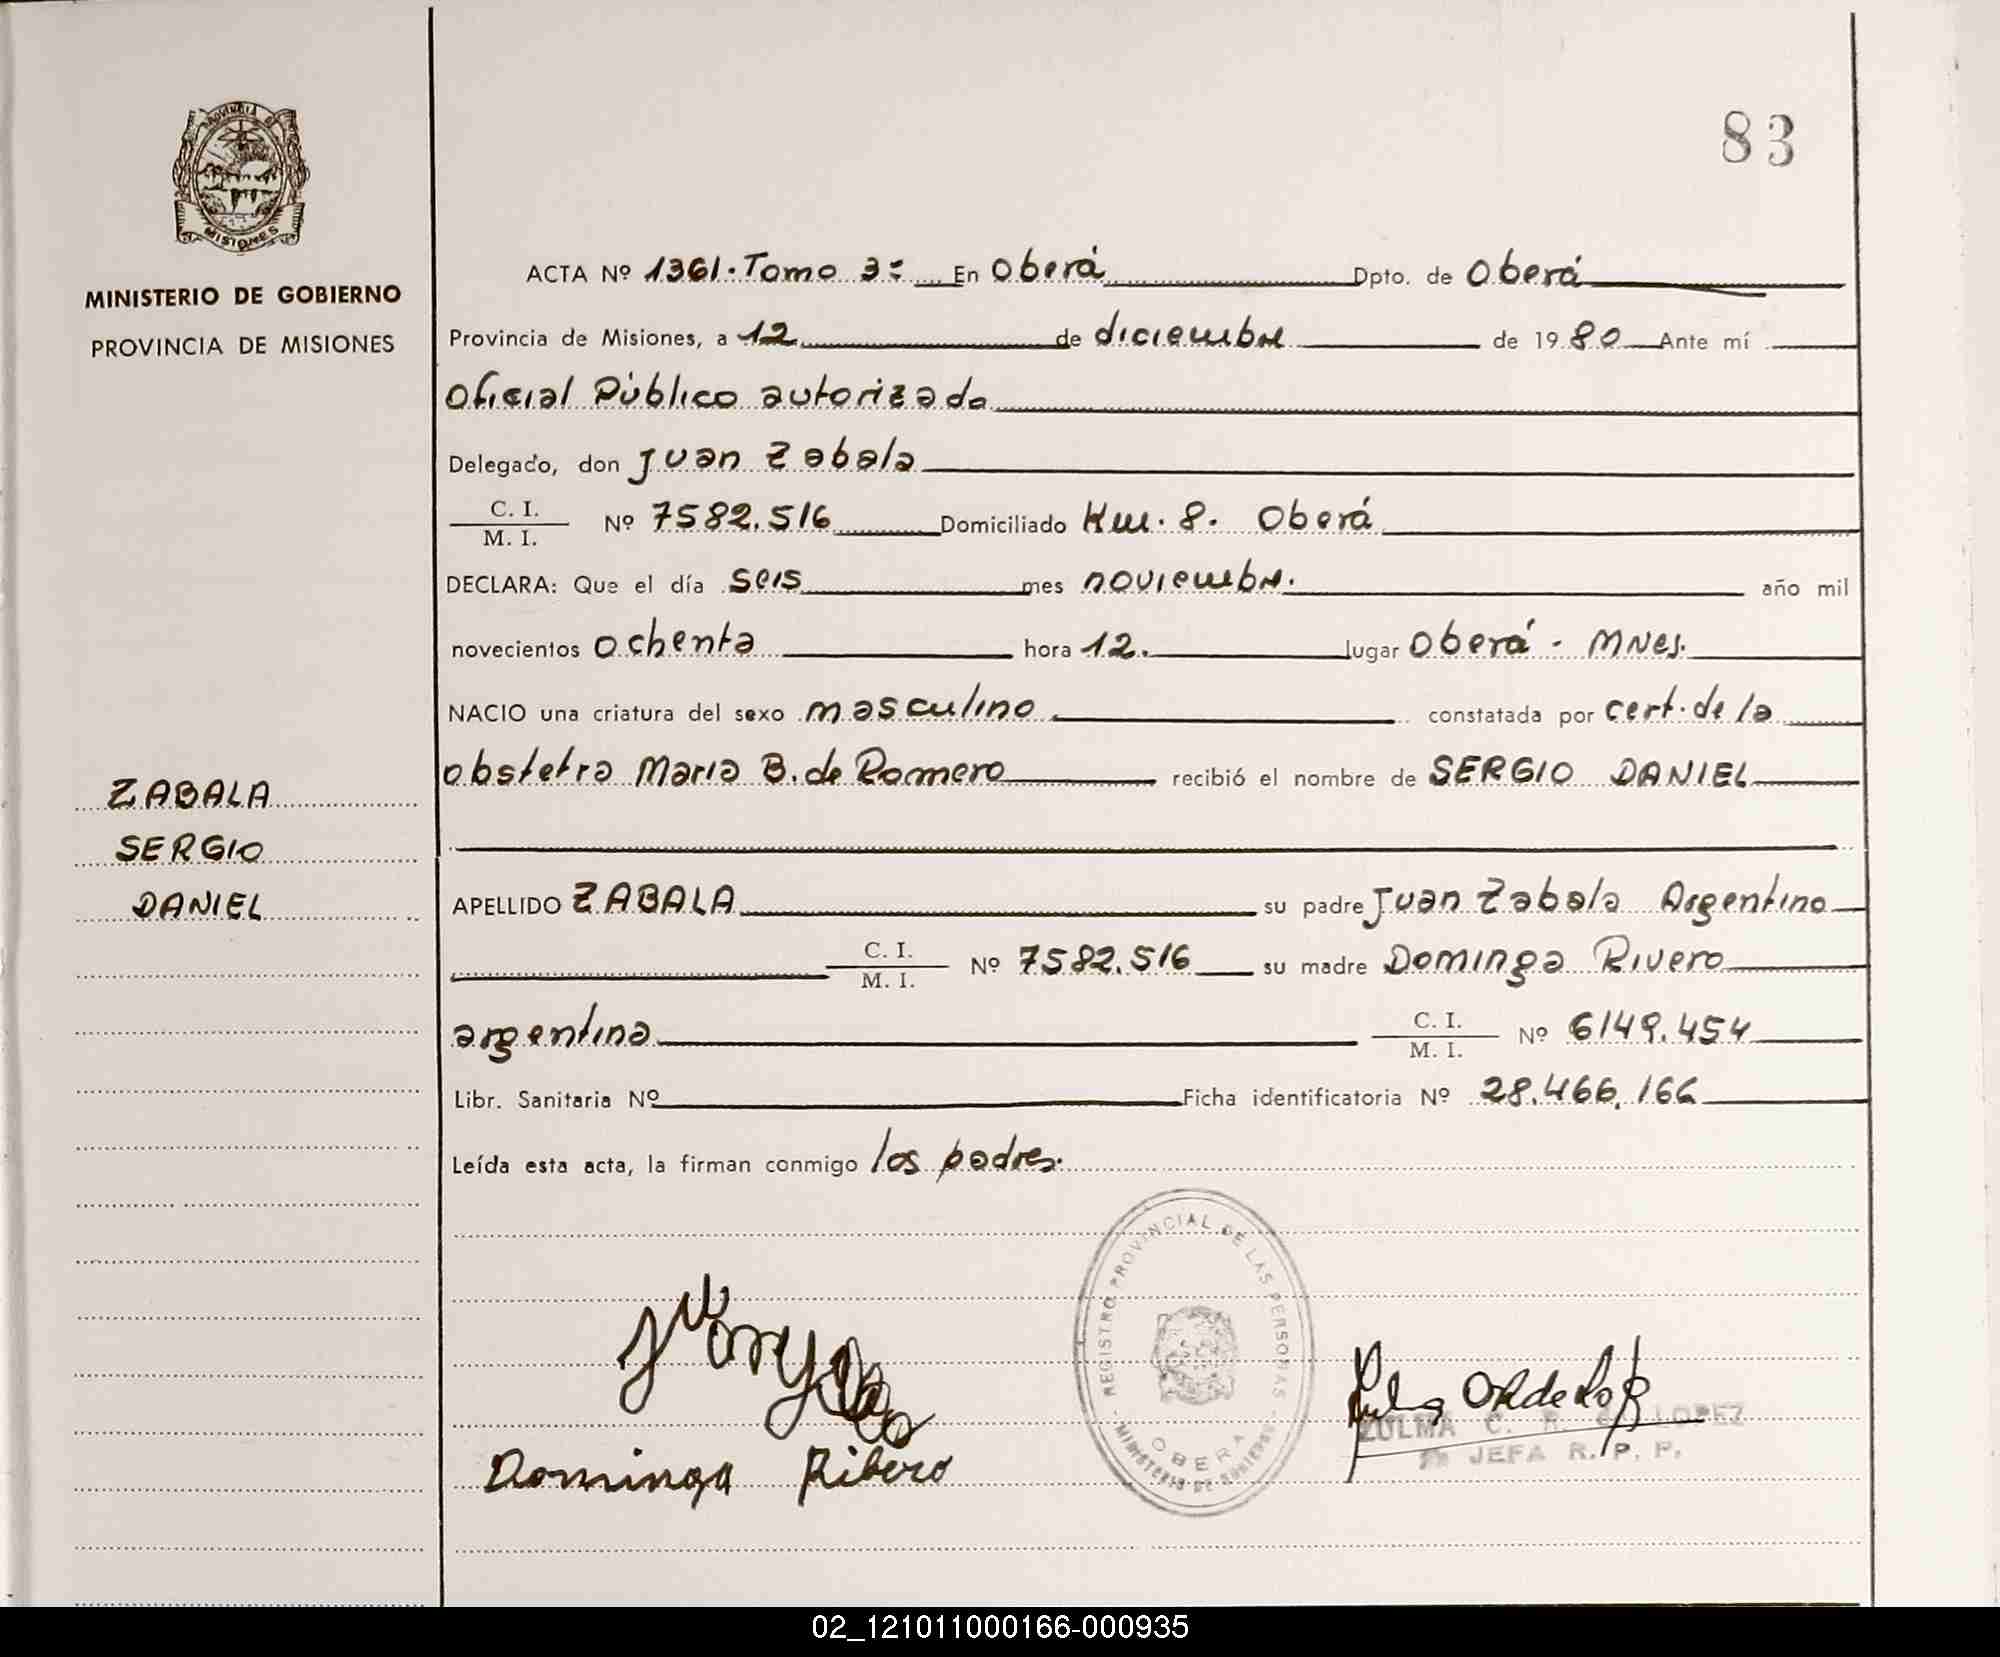 83
PROVINCIA DE
MISIONES
MINISTERIO DE GOBIERNO
PROVINCIA DE MISIONES
ZABALA
SERGIO
DANIEL
ACTA Nº 1361. Tomo 3: En Oberá Dpto. de Oberá
Provincia de Misiones, a 12 de diciembre de 1980 Ante mí
Oficial Público autorizado
Delegado, don Juan Zabala
C. I.
M. I. Nº 7582.516 Domiciliado Km. 8. Oberá
DECLARA: Que el día seis mes noviembre. año mil
novecientos ochenta hora 12. lugar Oberá - Mnes.
NACIO una criatura del sexo masculino constatada por cert. de la
obstetra Maria B. de Romero recibió el nombre de SERGIO DANIEL
APELLIDO ZABALA su padre Juan Zabala Argentino
C. I.
M. I. Nº 7582.516 su madre Dominga Rivero
argentina C. I.
M. I. Nº 6149.454
Libr. Sanitaria Nº Ficha identificatoria Nº 28.466.166
Leída esta acta, la firman conmigo los padres.
REGISTRO PROVINCIAL DE LAS PERSONAS - MINISTERIO DE GOBIERNO -
OBERA
Dominga Ribero
ZULMA C. R. LOPEZ
JEFA R. P. P.
02_121011000166-000935